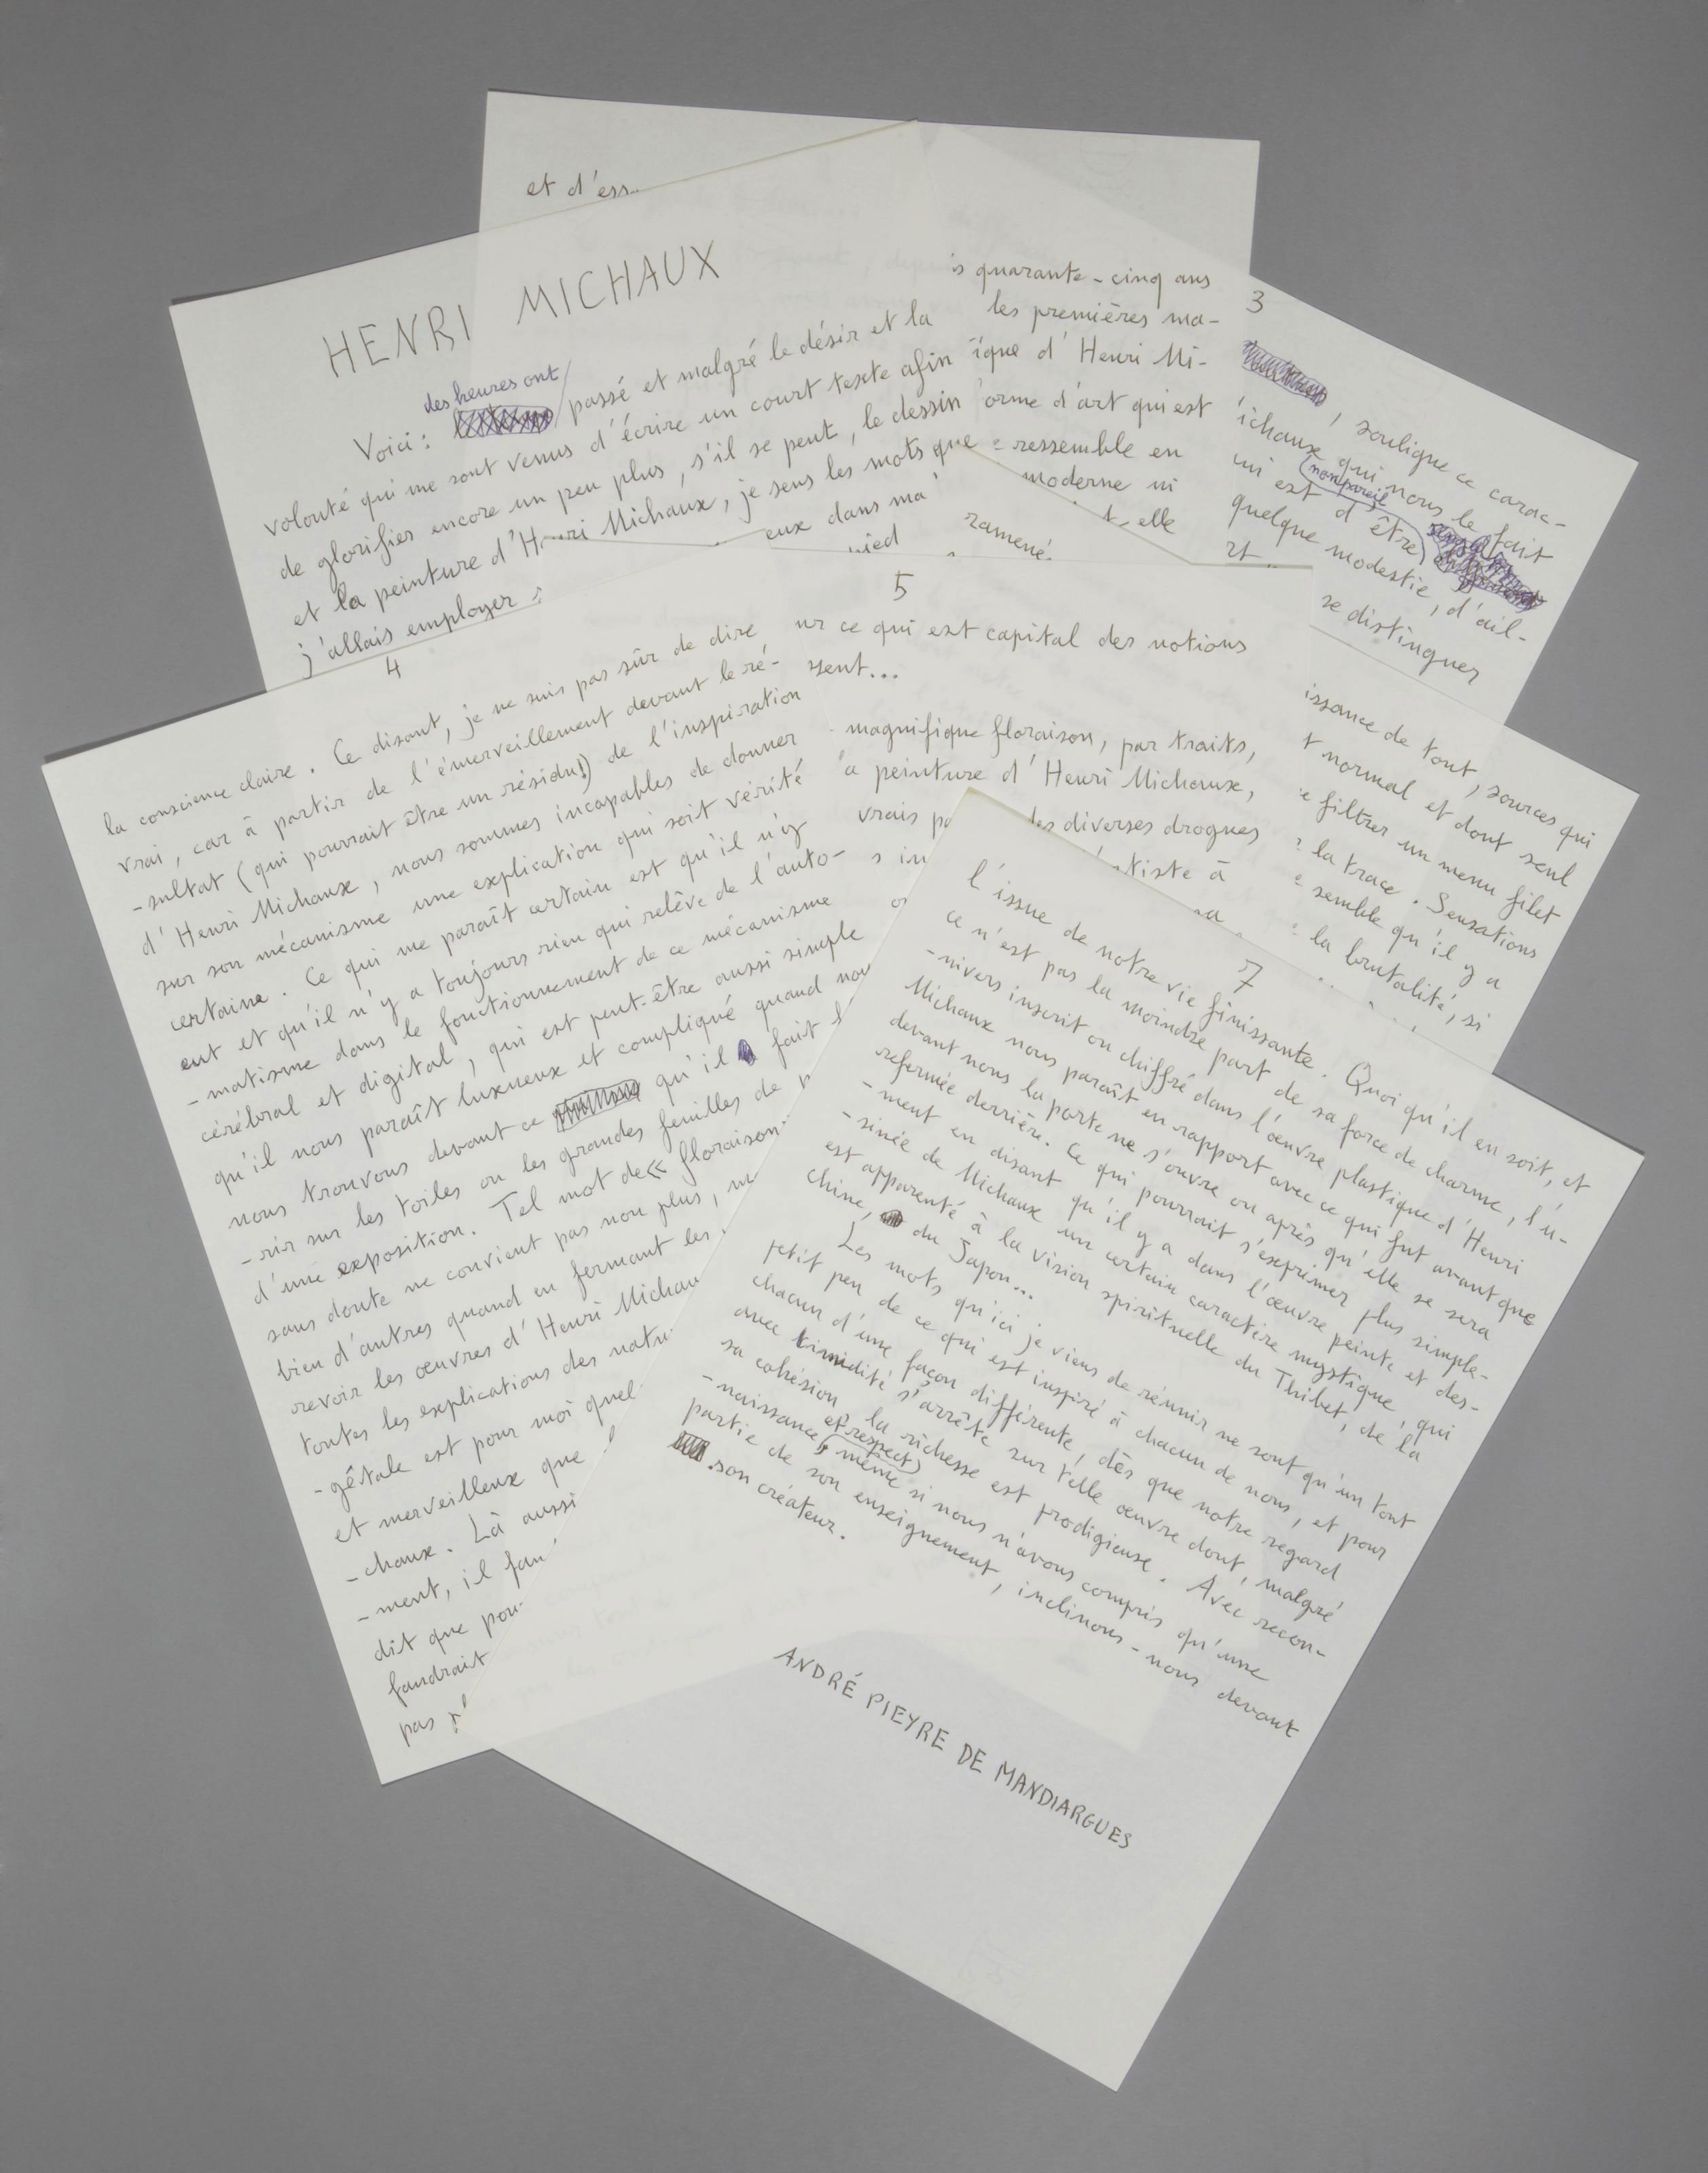 et d'ess
HENRI MICHAUX
des heures ont
Voici : passé et malgré le désir et la
volonté qui me sont venus d'écrire un court texte afin
de glorifier encore un peu plus, s'il se peut, le dessin
et la peinture d'Henri Michaux, je sens les mots que
j'allais employer
eux dans ma
pied
s quarante-cinq ans
les premières ma-
ique d'Henri Mi-
orme d'art qui est
ressemble en
moderne ni
t, elle
ramené
3
, souligne ce carac-
ichaux qui nous le fait
nonpareil
ui est d'être
quelque modestie, d'ail-
se distinguer
rt
4
la conscience claire. Ce disant, je ne suis pas sûr de dire
vrai, car à partir de l'émerveillement devant le ré-
-sultat (qui pourrait être un résidu!) de l'inspiration
d'Henri Michaux, nous sommes incapables de donner
sur son mécanisme une explication qui soit vérité
certaine. Ce qui me paraît certain est qu'il n'y
eut et qu'il n'y a toujours rien qui relève de l'auto-
-matisme dans le fonctionnement de ce mécanisme
cérébral et digital, qui est peut-être aussi simple
qu'il nous paraît luxueux et compliqué quand nou
nous trouvons devant ce qu'il fait
-rir sur les toiles ou les grandes feuilles de
d'une exposition. Tel mot de « floraison
sans doute ne convient pas non plus, m
bien d'autres quand en fermant les
revoir les œuvres d'Henri Michau
toutes les explications des natu
-gétale est pour moi quel
et merveilleux que
-chaux. Là aussi
-ment, il fau
dit que pou
faudrait
pas
5
ur ce qui est capital des notions
sent...
magnifique floraison, par traits,
a peinture d'Henri Michaux,
vrais pa les diverses drogues
s in rtiste à
issance de tout, sources qui
t normal et dont seul
e filtrer un menu filet
la trace. Sensations
e semble qu'il y a
la brutalité, si
7
l'issue de notre vie finissante. Quoi qu'il en soit, et
ce n'est pas la moindre part de sa force de charme, l'u-
-nivers inscrit ou chiffré dans l'œuvre plastique d'Henri
Michaux nous paraît en rapport avec ce qui fut avant que
devant nous la porte ne s'ouvre ou après qu'elle se sera
refermée derrière. Ce qui pourrait s'exprimer plus simple-
-ment en disant qu'il y a dans l'œuvre peinte et des-
-sinée de Michaux un certain caractère mystique, qui
est apparenté à la vision spirituelle du Thibet, de la
Chine, du Japon...
Les mots qu'ici je viens de réunir ne sont qu'un tout
petit peu de ce qui est inspiré à chacun de nous, et pour
chacun d'une façon différente, dès que notre regard
avec timidité s'arrête sur telle œuvre dont, malgré
sa cohésion, la richesse est prodigieuse. Avec recon-
et respect
-naissance, même si nous n'avons compris qu'une
partie de son enseignement, inclinons-nous devant
son créateur.
ANDRÉ PIEYRE DE MANDIARGUES